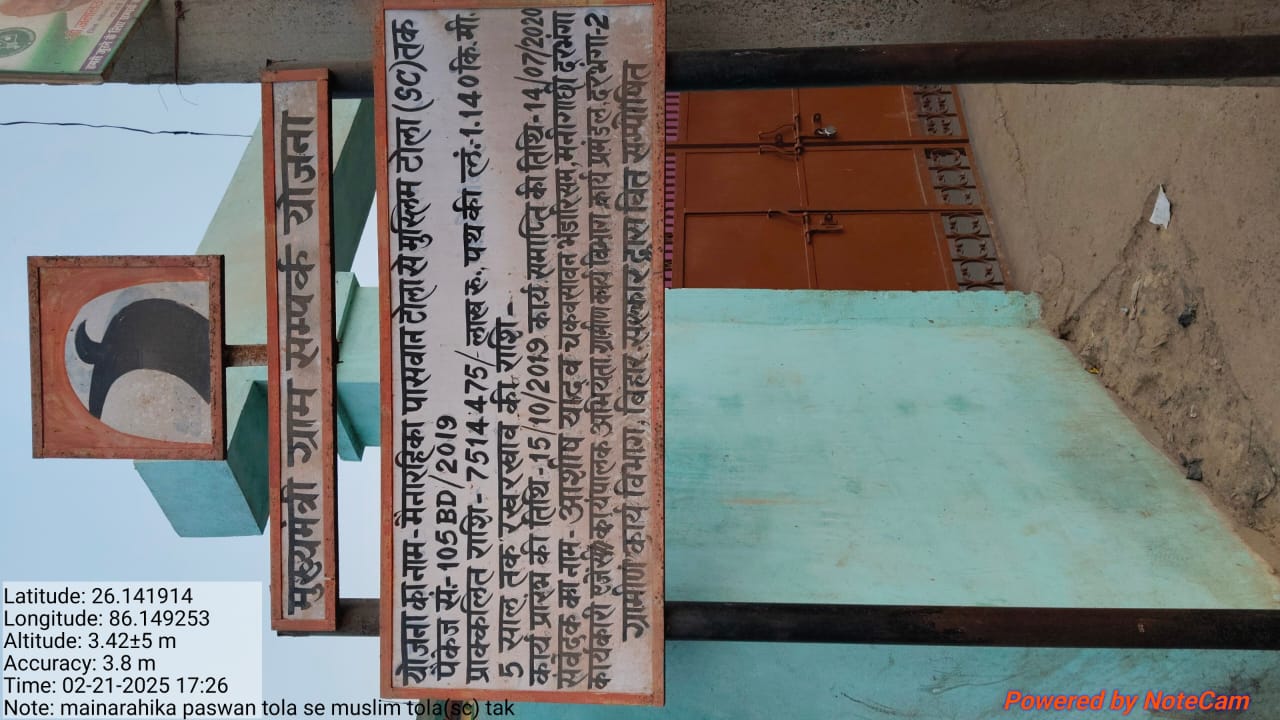 मुख्यमंत्री ग्राम सम्पर्क योजना
योजना का नाम - मैनारहिका पासवान टोला से मुस्लिम टोला (SC) तक
पैकेज सं.- 105 BD/2019
प्राक्कलित राशि - 7514.475/- लाख रु., पथ की लं.:-1.140 कि.मी.
5 साल तक रखरखाव की राशि -
कार्य प्रारंभ की तिथि - 15/10/2019 कार्य समाप्ति की तिथि - 14/07/2020
संवेदक का नाम - आशीष यादव चकवसावन भंडारिसम, मनीगाछी दरभंगा
कार्यकारी एजेंसी कार्यपालक अभियंता ग्रामीण कार्य विभाग कार्य प्रमंडल, दरभंगा-2
ग्रामीण कार्य विभाग, बिहार सरकार द्वारा वित सम्पोषित
Latitude: 26.141914
Longitude: 86.149253
Altitude: 3.42±5 m
Accuracy: 3.8 m
Time: 02-21-2025 17:26
Note: mainarahika paswan tola se muslim tola(sc) tak
Powered by NoteCam